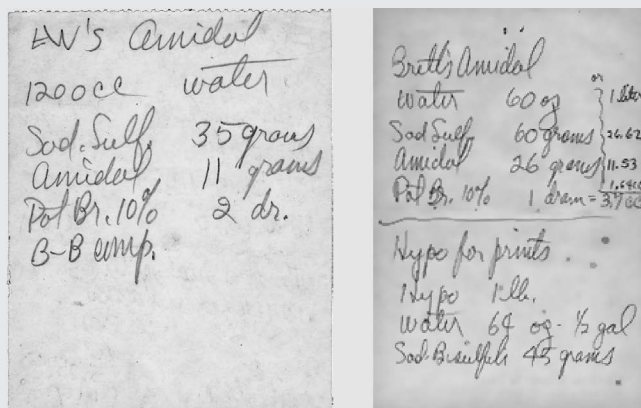 EW's Amidol
1200cc water
Sod. Sulf. 35 grams
Amidol 11 grams
Pot Br. 10% 2 dr.
B-B comp.
Brett's Amidol
or
Water 60 oz 1 liter
Sod Sulf. 60 grams 26.62
Amidol 26 grams 11.53
Pot Br. 10% 1 dram =
Hypo for prints.
Hypo 1 lb.
Water 64 oz - 1/2 gal
Sod. Bisulfite 45 grams